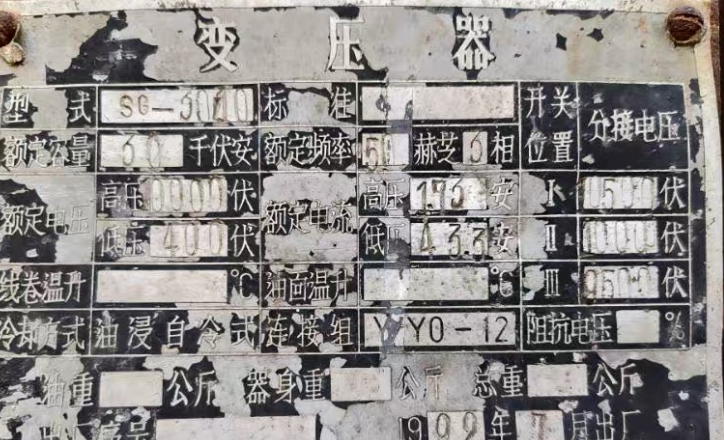 变压器
型式 SG-30/10 标准 开关位置 分接电压
额定容量 30 千伏安 额定频率 50 赫芝 3 相
额定电压 高压 伏 额定电流 高压 安 I 伏
低压 400 伏 低压 43.3 安 II 伏
线卷温升 ℃ 油面温升 ℃ III 9500 伏
冷却方式 油浸自冷式 连接组 Y/Y0-12 阻抗电压 %
油重 公斤 器身重 公斤 总重 公斤
1992 年 7 月出厂